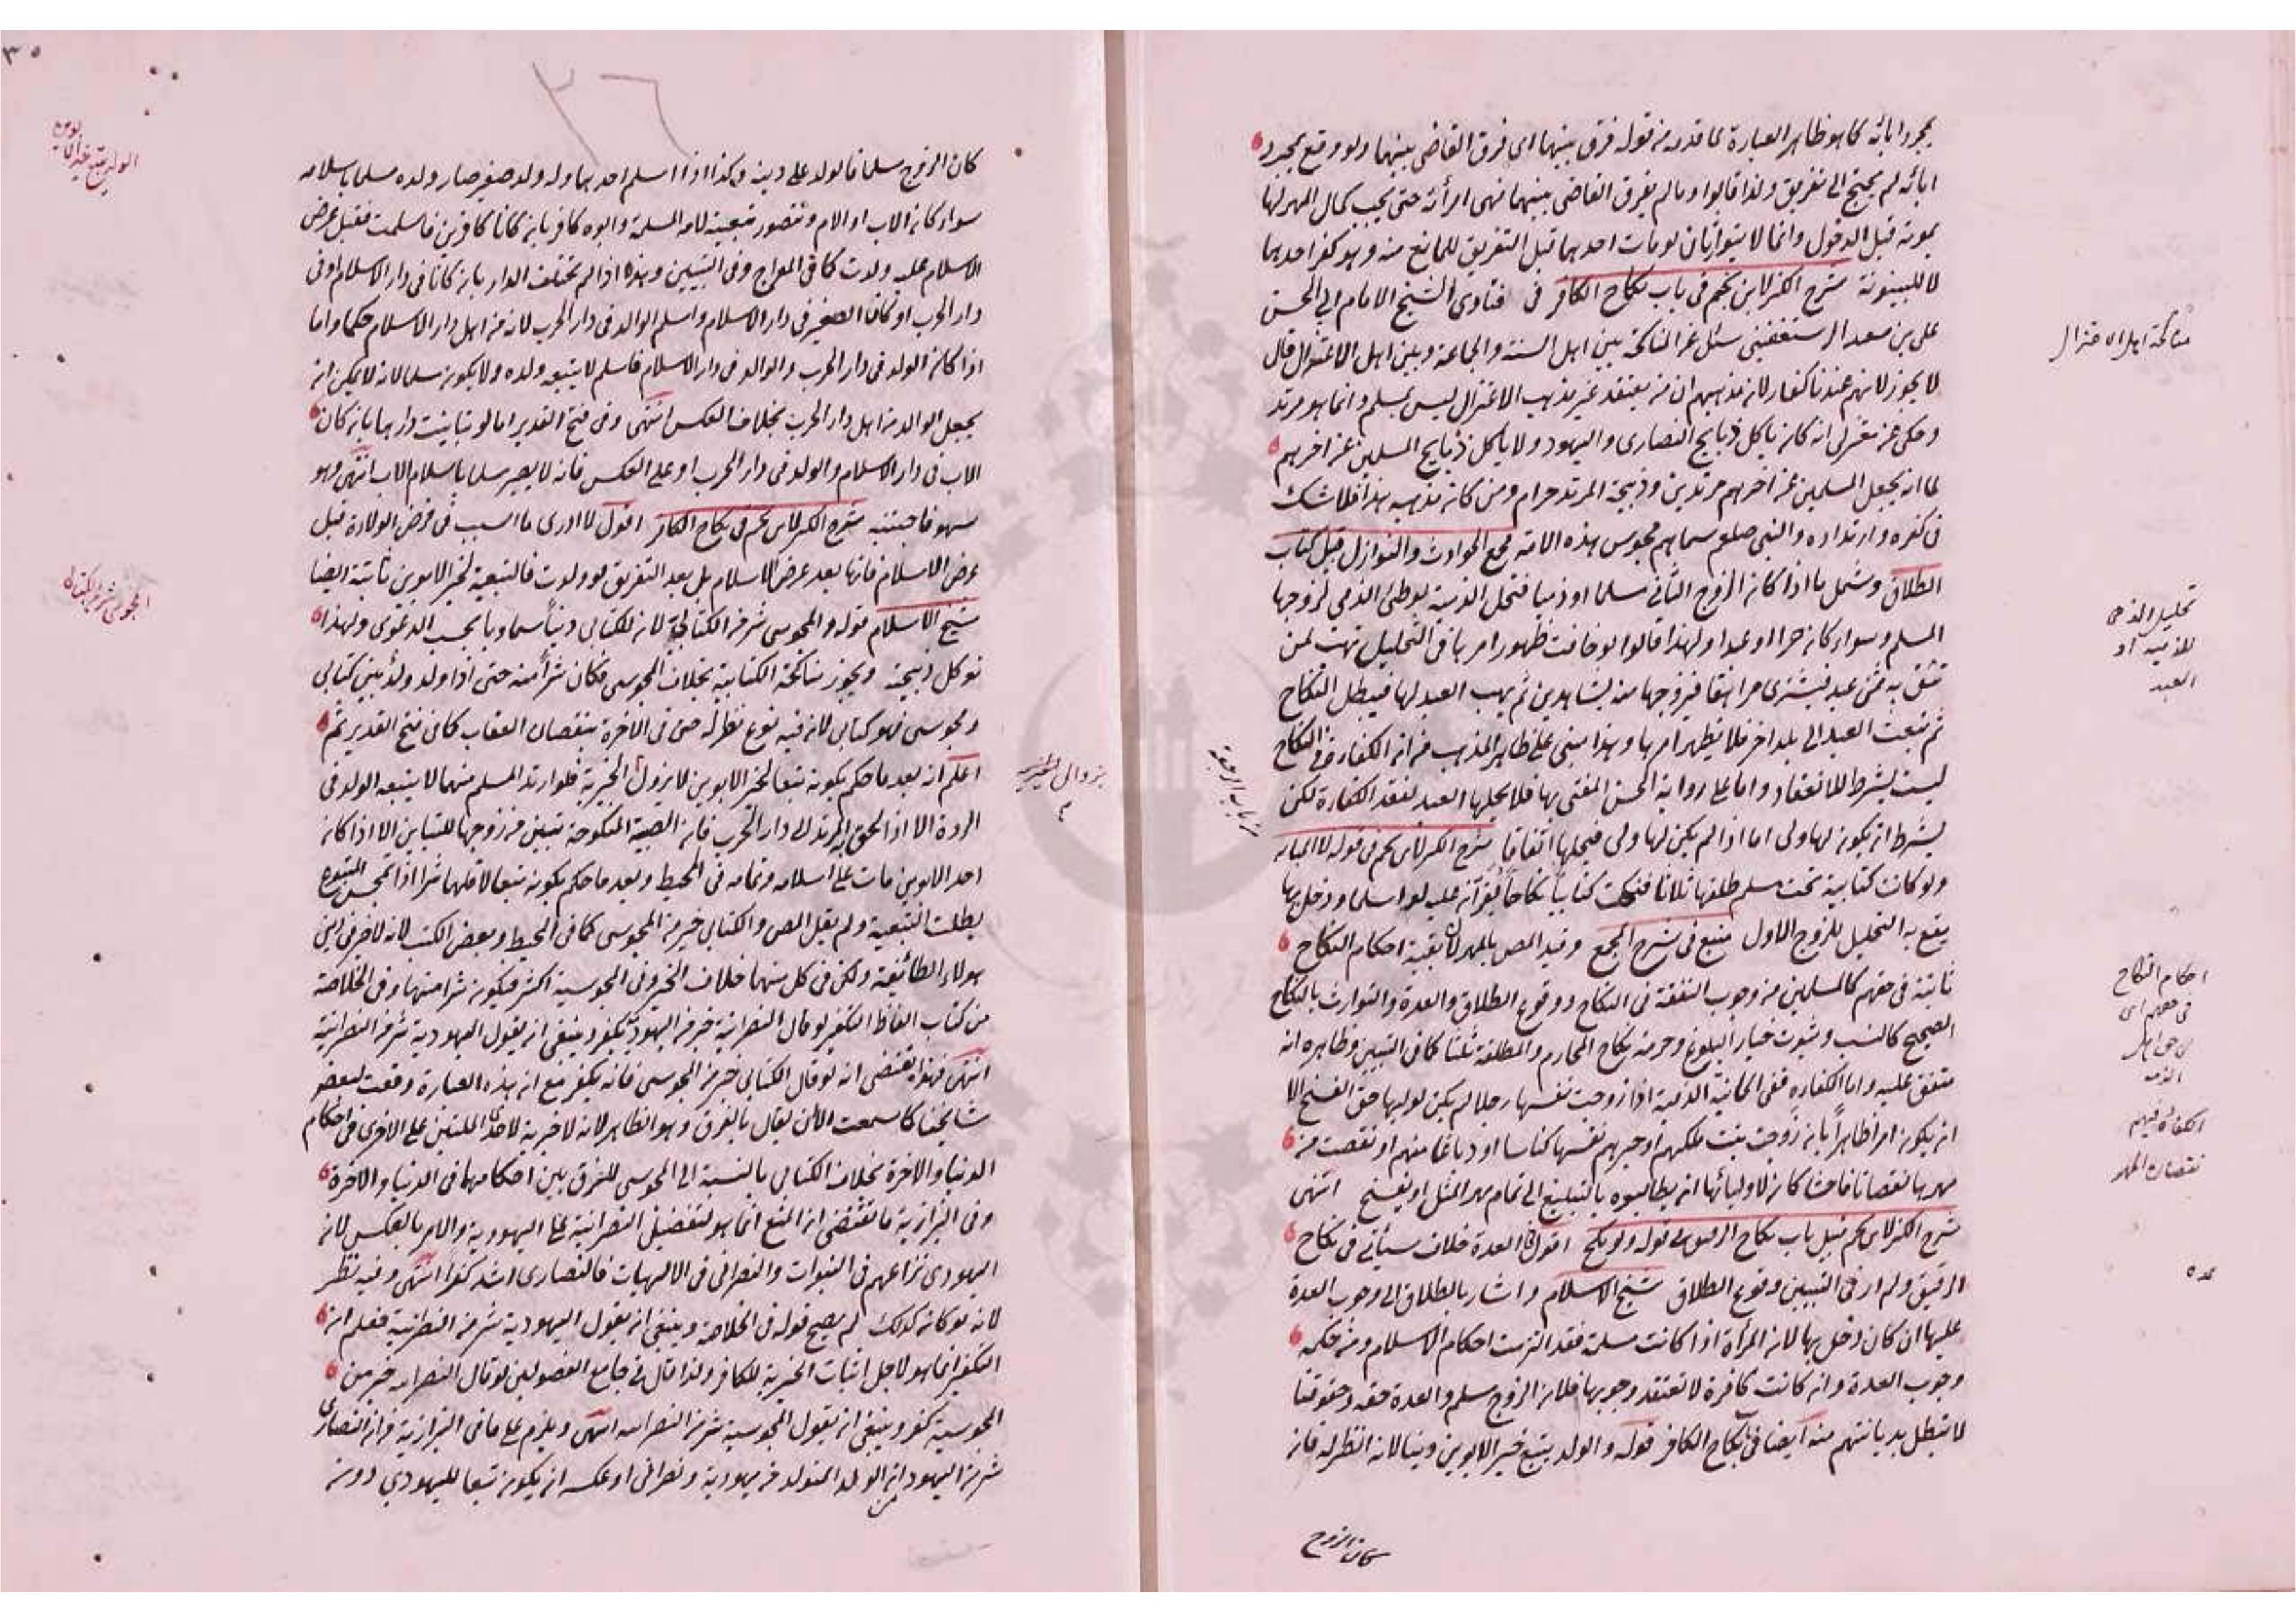 بمجرد ابائه كما هو ظاهر العبارة لما قدمه من قوله فرق بينهما اى فرق القاضى بينهما ولو وقع بمجرد
ابائه لم يحتج الى تفريق ولذا قالوا وما لم يفرق القاضى بينهما فهى امرأته حتى يجب كمال المهر لها
بموته قبل الدخول وانما لا يتوارثان لو مات احدهما قبل التفريق للمانع منه وهو كفر احدهما
لا للبينونة شرح الكنز لابن نجيم فى باب نكاح الكافر فى فتاوى الشيخ الامام ابى الحسن
على بن سعد الرستغفنى سئل عن المناكحة بين اهل السنة والجماعة وبين اهل الاعتزال قال
لا يجوز لانهم عندنا كفار لان مذهبهم ان من يعتقد غير مذهب الاعتزال ليس بمسلم وانما هو مرتد
وحكى عن معتزلى انه كان يأكل ذبايح النصارى واليهود ولا يأكل ذبايح المسلمين عن اخرهم
لما انه يجعل المسلمين عن اخرهم مرتدين وذبيحة المرتد حرام ومن كان مذهبه هذا فلا شك
فى كفره وارتداده والنبى صلعم سماهم مجوس هذه الامة مجمع الحوادث والنوازل قبيل كتاب
الطلاق وشمل ما اذا كان الزوج الثانى مسلما او ذميا فتحل الذمية بوطئ الذمى لزوجها
المسلم وسواء كان حرا او عبدا ولهذا قالوا لو خافت ظهور امرها فى التحليل تهب لمن
تثق به ثمن عبد فيشترى مراهقا فيزوجها منه بشاهدين ثم يهب العبد لها فيبطل النكاح
ثم تبعث العبد الى بلد اخر فلا يظهر امرها وهذا مبنى على ظاهر المذهب من ان الكفاءة فى النكاح
ليست بشرط للانعقاد واما على رواية الحسن المفتى بها فلا يحلها العبد لفقد الكفاءة لكن
بشرط ان يكون لها ولى اما اذا لم يكن لها ولى فيحلها اتفاقا شرح الكنز لابن نجيم فى قوله لا المبانة
ولو كانت كتابية تحت مسلم طلقها ثلاثا فنكحت كتابيا نكاحا يقرآن عليه لو اسلما ودخل بها
يقع به التحليل للزوج الاول منبع فى شرح المجمع وقيد المص بالمهر لان بقية احكام النكاح
ثابتة فى حقهم كالمسلمين من وجوب النفقة فى النكاح ووقوع الطلاق والعدة والتوارث بالنكاح
الصحيح كالنسب وثبوت خيار البلوغ وحرمة نكاح المحارم والمطلقة ثلثا كما فى التبيين وظاهره انه
متفق عليه واما الكفاءة ففى الخانية الذمية اذا زوجت نفسها رجلا لم يكن لوليها حق الفسخ الا
ان يكون امرا ظاهرا بان زوجت بنت ملكهم او حبرهم نفسها كناسا او دباغا منهم او نقصت من
مهرها نقصانا فاحشا كان لاوليائها ان يطالبوه بالتبليغ الى تمام مهر المثل او يفسخ انتهى
شرح الكنز لابن نجيم قبيل باب نكاح الرقيق فى قوله ولو نكح اقول فى العدة خلاف سيأتى فى نكاح
الرقيق ولم ار فى التبيين وقوع الطلاق شيخ الاسلام واشار بالطلاق الى وجوب العدة
عليها ان كان دخل بها لان المرأة اذا كانت مسلمة فقد التزمت احكام الاسلام ومن حكمه
وجوب العدة وان كانت كافرة لا تعتقد وجوبها فلان الزوج مسلم والعدة حقه وحقوقنا
لا تبطل بديانتهم منه ايضا فى نكاح الكافر قوله والولد يتبع خير الابوين دينا لانه انظر له فان
كان الزوج
مناكحة اهل الاعتزال
تحليل الذمى
للذمية او
العبد
احكام النكاح
فى حقهم اى
فى حق اهل
الذمة
الكفاءة فيهم
نقصان المهر
عده
من باب الرجعة
٢٦
كان الزوج مسلما فالولد على دينه وكذا اذا اسلم احدهما وله ولد صغير صار ولده مسلما باسلامه
سواء كان الاب او الام وتتصور تبعيته لامه المسلمة وابوه كافر بان كانا كافرين فاسلمت فقبل عرض
الاسلام عليه ولدت كما فى المعراج وفى التبيين وهذا اذا لم تختلف الدار بان كانا فى دار الاسلام او فى
دار الحرب او كان الصغير فى دار الاسلام واسلم الوالد فى دار الحرب لانه من اهل دار الاسلام حكما واما
اذا كان الولد فى دار الحرب والوالد فى دار الاسلام فاسلم لا يتبعه ولده ولا يكون مسلما لانه لا يمكن ان
يجعل الوالد من اهل دار الحرب بخلاف العكس انتهى وفى فتح القدير اما لو تباينت دارهما بان كان
الاب فى دار الاسلام والولد فى دار الحرب او على العكس فانه لا يصير مسلما باسلام الاب انتهى وهو
سهو فاجتنبه شرح الكنز لابن نجيم فى نكاح الكافر اقول لا ادرى ما السبب فى فرض الولادة قبل
عرض الاسلام فانها بعد عرض الاسلام بل بعد التفريق لو ولدت فالتبعية لخير الابوين ثابتة ايضا
شيخ الاسلام قوله والمجوسى شر من الكتابى لان للكتابى دينا سماويا بحسب الدعوى ولهذا
تؤكل ذبيحته ويجوز مناكحة الكتابية بخلاف المجوسى فكان شرا منه حتى اذا ولد ولد بين كتابى
ومجوسى فهو كتابى لان فيه نوع نظر له حتى فى الاخرة بنقصان العقاب كما فى فتح القدير ثم
اعلم انه بعد ما حكم بكونه تبعا لخير الابوين لا يزول الخيرية فلو ارتد المسلم منهما لا يتبعه الولد فى
الردة الا اذا لحق المرتد الى دار الحرب فان الصبية المنكوحة تبين من زوجها للتباين الا اذا كان
احد الابوين مات على اسلامه وتمامه فى المحيط وبعد ما حكم بكونه تبعا لاقلهما شرا اذا تمجس المتبوع
بطلت التبعية ولم يقل المص والكتابى خير من المجوسى كما فى المحيط وبعض الكتب لانه لا خير فى
هولاء الطائفة ولكن فى كل منهما خلاف الخير وفى المجوسية اكثر فيكون شرا منها وفى الخلاصة
من كتاب الفاظ التكفير لو قال النصرانية خير من اليهودية يكفر وينبغى ان يقول اليهودية شر من النصرانية
انتهى فهذا يقتضى انه لو قال الكتابى خير من المجوسى فانه يكفر مع ان هذه العبارة وقعت لبعض
مشايخنا كما سمعت الا ان يقال بالفرق وهو الظاهر لانه لا خيرية لاحدى الملتين على الاخرى فى احكام
الدنيا والاخرة بخلاف الكتابى بالنسبة الى المجوسى للفرق بين احكامهما فى الدنيا والاخرة
وفى البزازية ما يقتضى ان المنع انما هو لتفضيل النصرانية على اليهودية والامر بالعكس لان
اليهودى نزاعهم فى النبوات والنصرانى فى الالهيات فالنصارى اشد كفرا انتهى وفيه نظر
لانه لو كان كذلك لم يصح قوله فى الخلاصة وينبغى ان يقول اليهودية شر من النصرانية فعلم ان
التكفير انما هو لاجل اثبات الخيرية للكافر ولذا قال فى جامع الفصولين لو قال النصرانية خير من
المجوسية كفر وينبغى ان يقول المجوسية شر من النصرانية انتهى ويلزم على ما فى البزازية من ان النصارى
شر من اليهود ان الولد المتولد من يهودية ونصرانى او عكسه ان يكون تبعا لليهودى دون
الولد يتبع خير الابوين
المجوسى شر من الكتابى